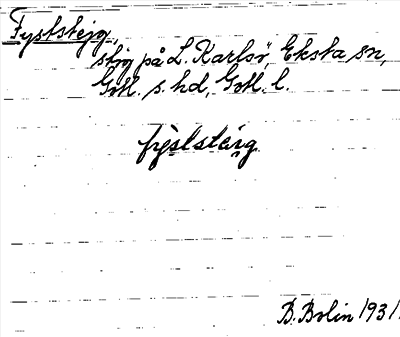 Fyststejg,
stig på L. Karlsö, Eksta sn,
Gotl. s. hd, Gotl. l.
fyslstäig
B. Bolin 1931.